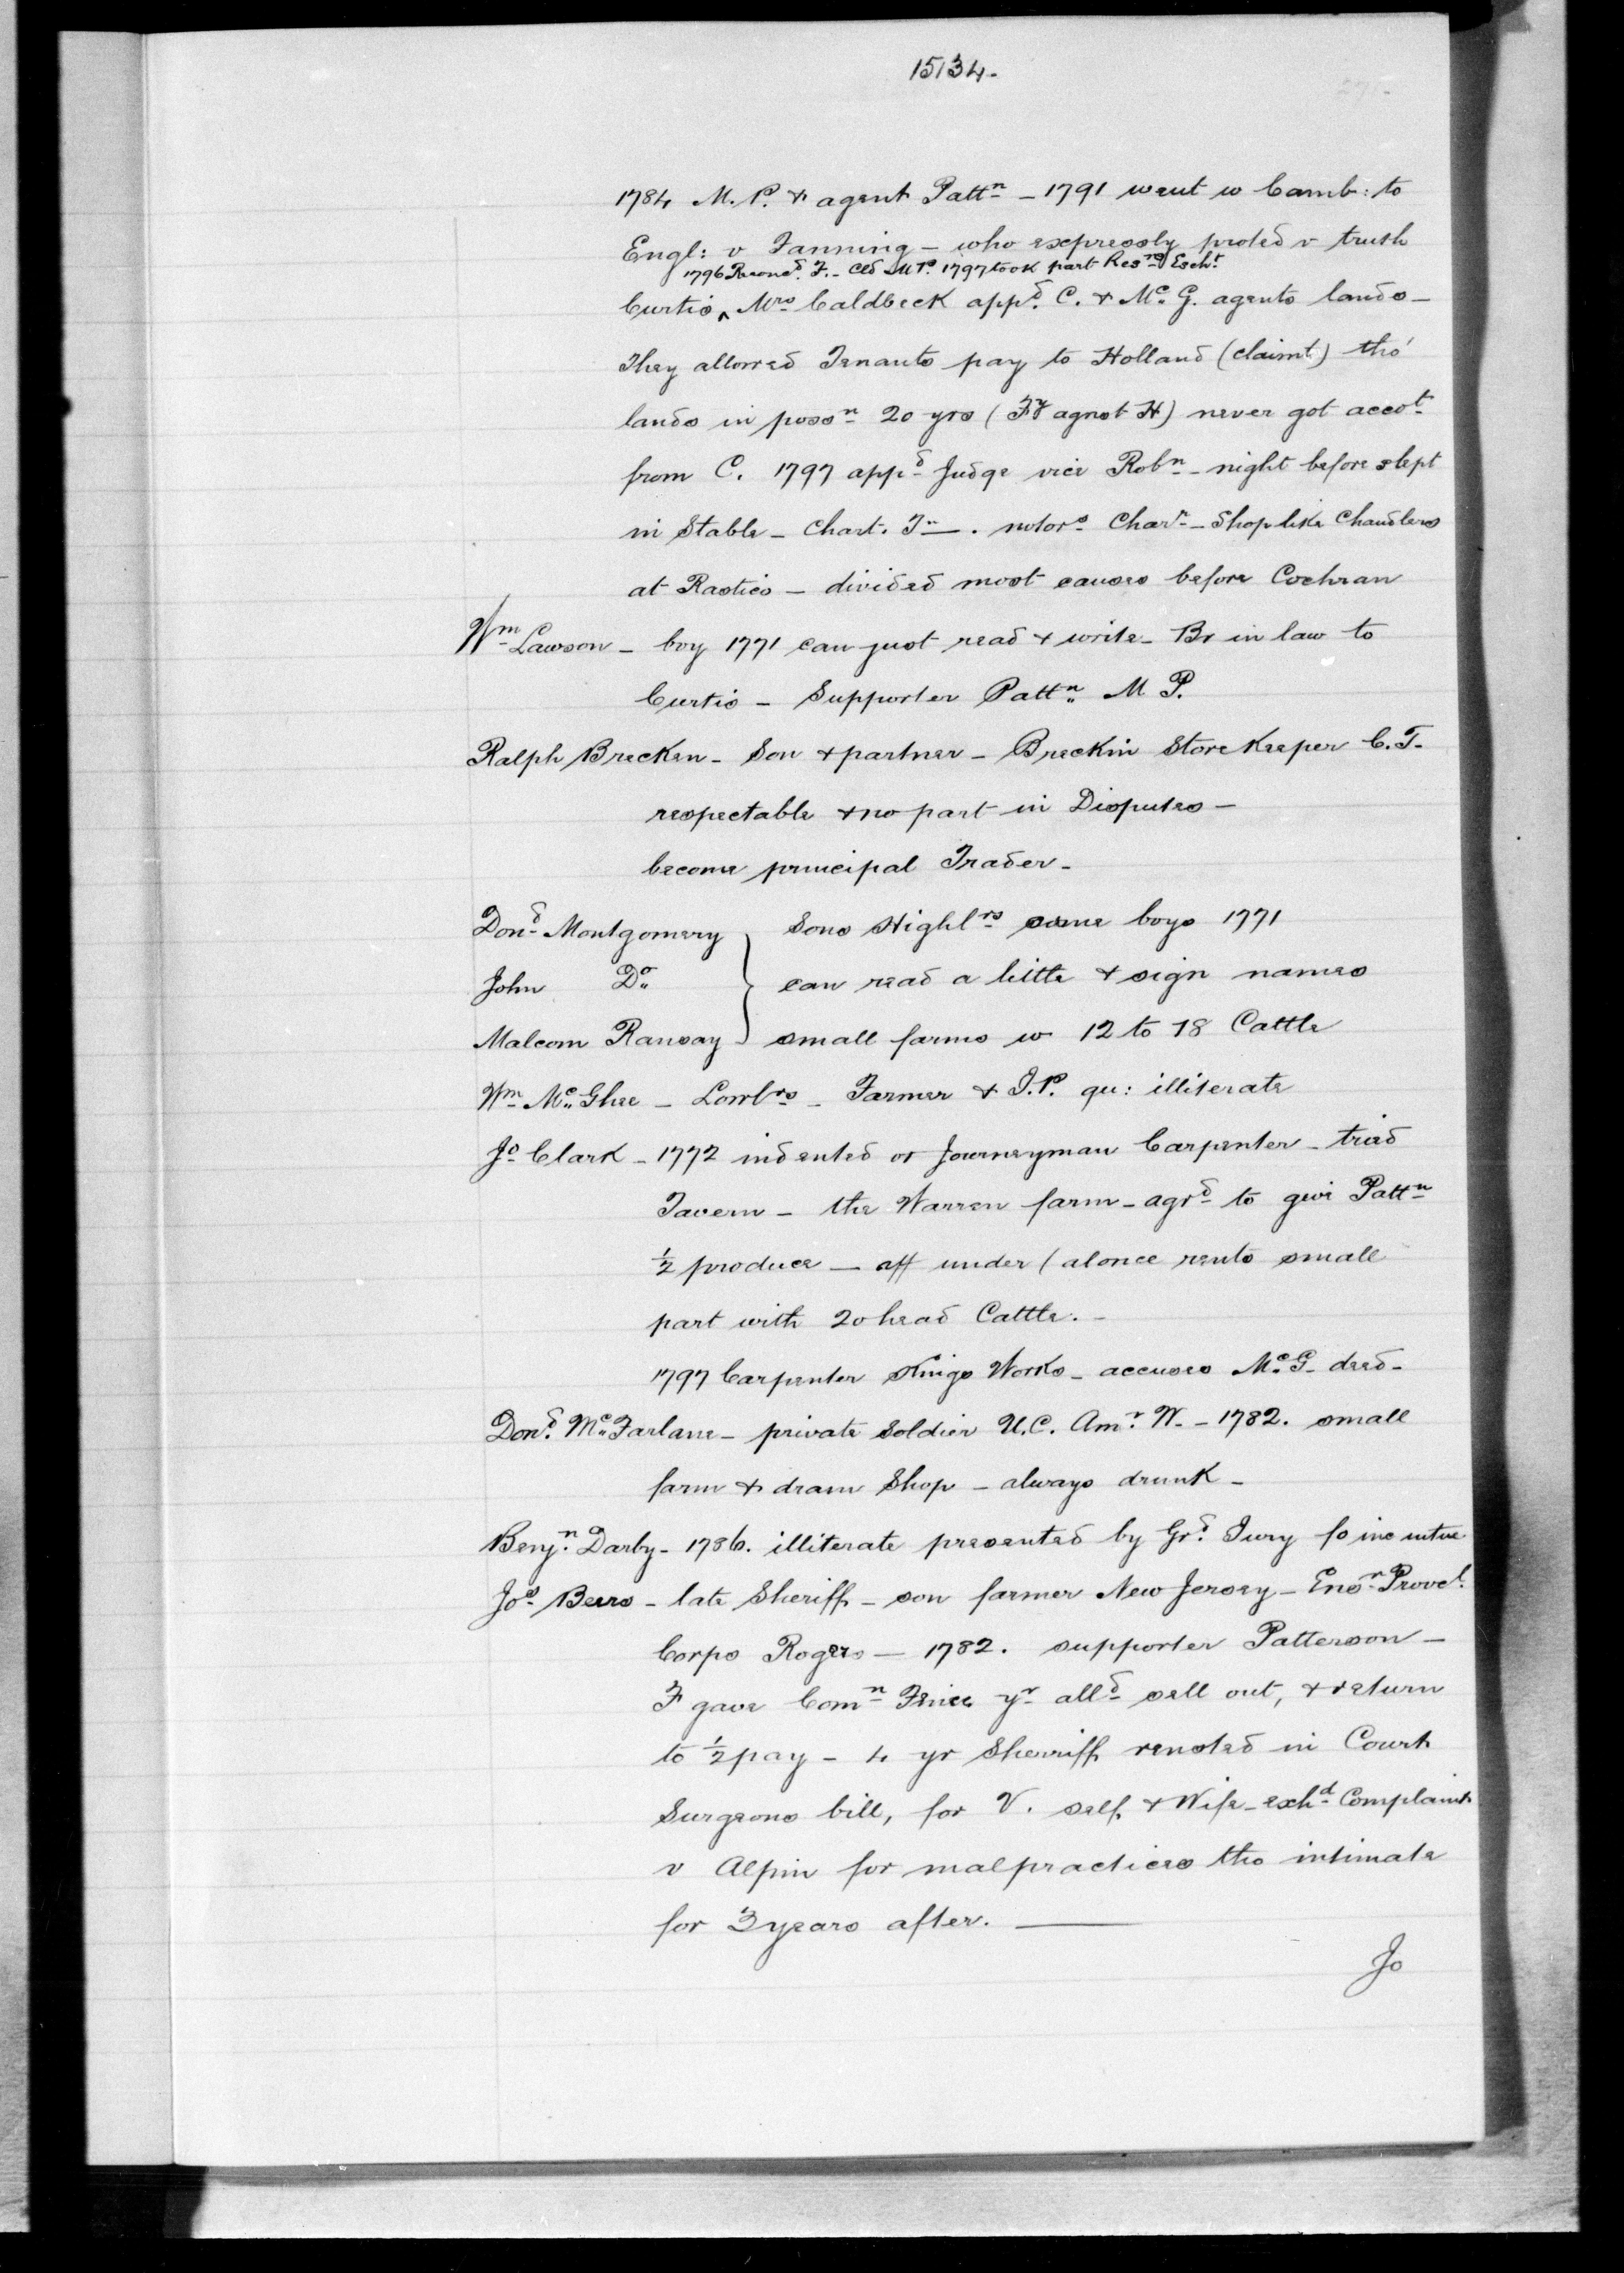 15134.
1784 M.P. & agent Pattn - 1791 went w Camb: to
Engl: v Fanning - who expressly proted v trush
1796 Reconcd. F. - Cld M P. 1797 took part Resng Escht
Curtis ^ Mrs Caldbeck appd. C. & Mc G. agents lands -
They allowed Tenants pay to Holland (claimt) tho'
lands in possn 20 yrs (Fy agnst H) never got accot
from C. 1797 appd Judge vice Robn - night before slept
in Stable - Chart. Tn. notors Charr - Shop like Chandlers
at Rastico - divided most causes before Cochran
Wm Lawson - boy 1771 can just read & write - Br in law to
Curtis - Supporter Pattn M P.
Ralph Brecken - Son & partner - Breckin Storekeeper C.T.
respectable & no part in Disputes -
become principal Trader -
Dond Montgomery } Sons Highlrs came boys 1771
John Do } can read a little & sign names
Malcom Ramsay } small farms w 12 to 18 Cattle
Wm Mc Ghee - Lowlrs - Farmer & J.P. qu: illiterate
Jo Clark - 1772 indented or Journeyman Carpenter - tried
Tavern - the Warren farm - agrd to give Pattn
½ produce - aff under / alonce rents small
part with 20 head Cattle. -
1797 Carpenter Kings Works - accuses Mc G - deed -
Dond. Mc Farlane - private Soldier U.C. Amr. W. - 1782. small
farm & dram Shop - always drunk -
Benjn. Darby - 1786. illiterate presented by Grd. Jury fo inc
Jos Beers - late Sheriff - son farmer New Jersey - Ensn Provcl.
Corps Rogers - 1782. supporter Patterson -
F gave Comn Fence yr alld sell out, & return
to ½ pay - 4 yr Sherriff rensted in Court
Surgeons bill, for V. self & Wife - exhd Complaint
v Alpin for malpractices tho intimate
for 3 years after.
Jo